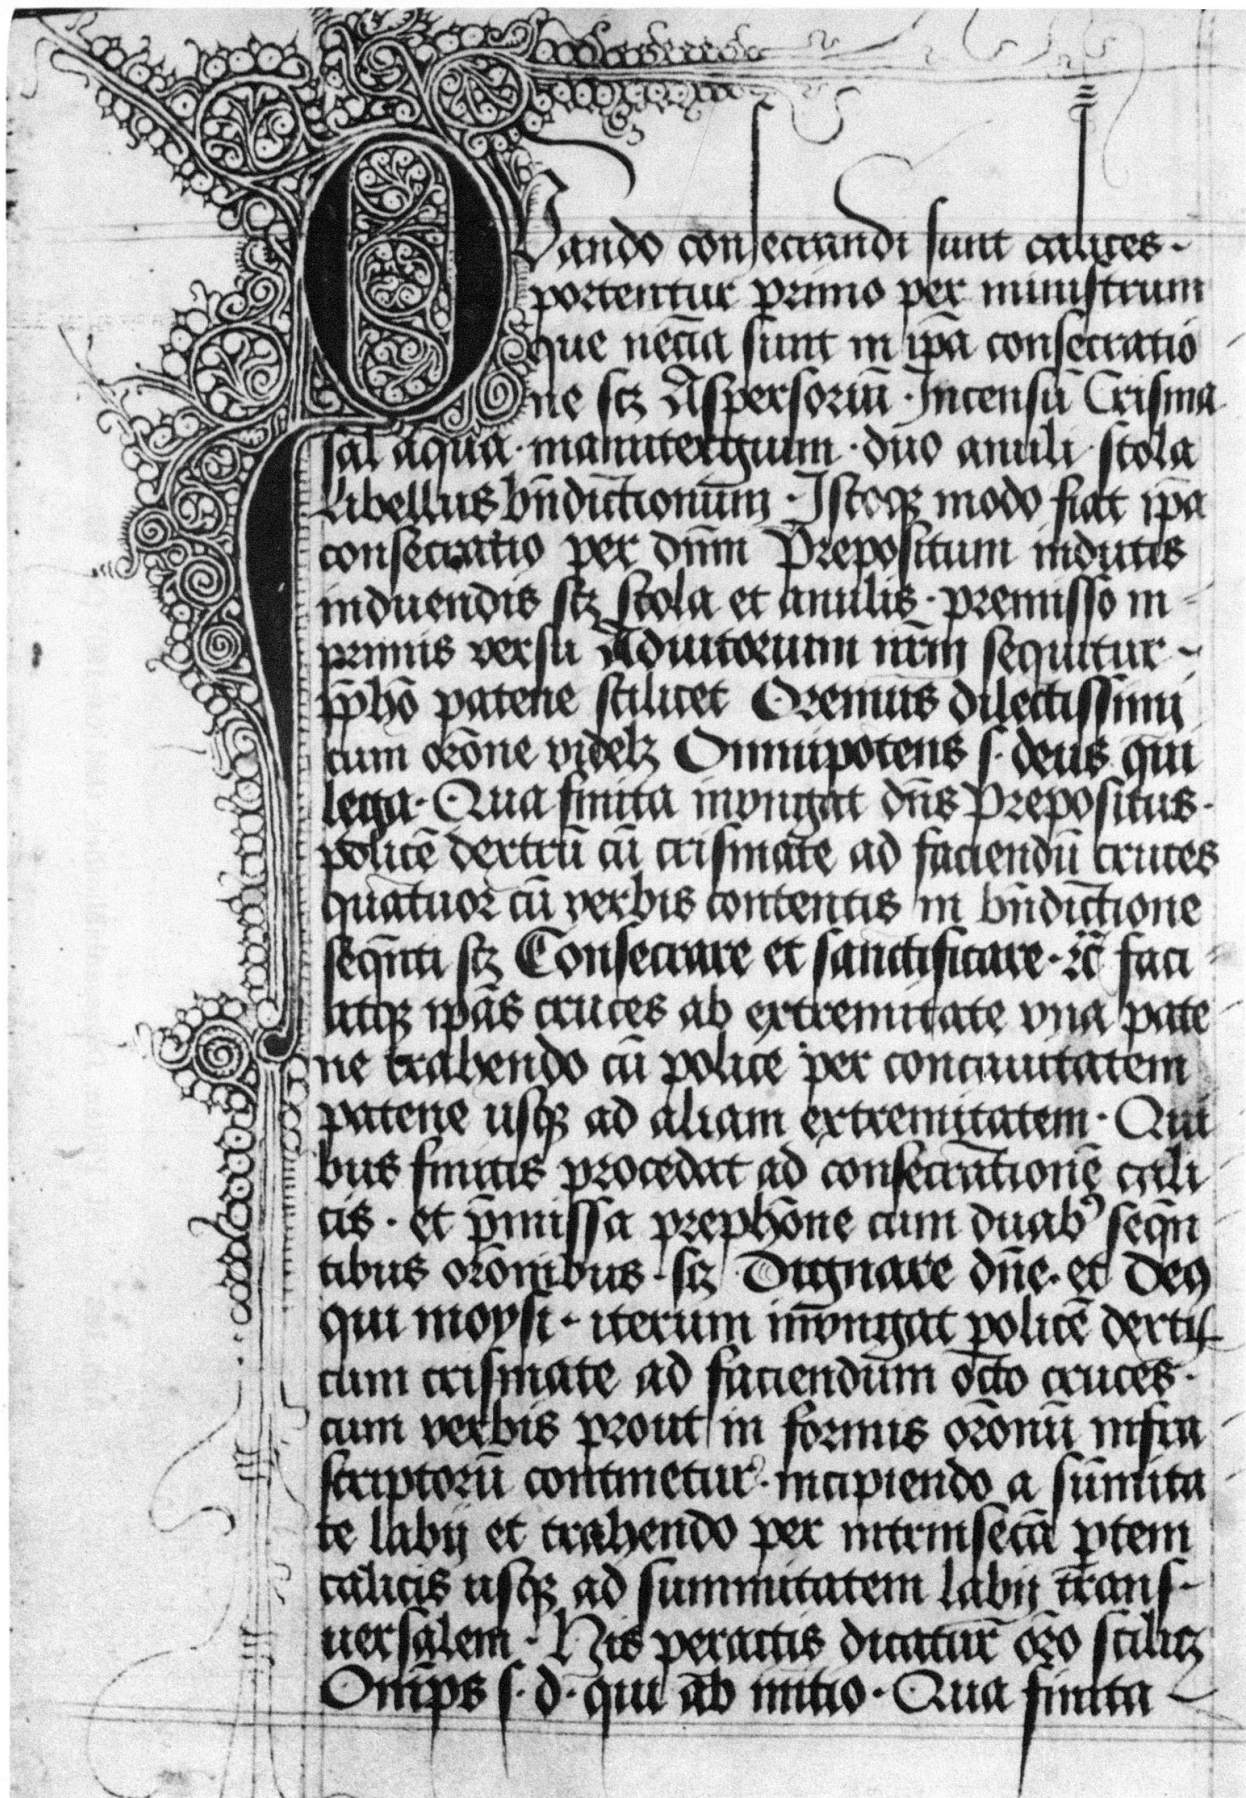 Quando consecrandi sunt calices ·
portentur primo per ministrum
que nec̄ia sunt in ip̄a consecratio
ne scꝫ Aspersoriū · Incensū Crisma
sal aqua · manutergium · duo anuli · stola
Libellus bn̄dictionum · Istoqꝫ modo fiat ip̄a
consecratio per dn̄m Prepositum indutis
induendis scꝫ stola et anulis · premisso in
primis versu Adiutorium nr̄m sequitur
p̄phō patene scilicet Oremus dilectissimi
cum orōne videlꝫ Omnipotens s · deus qui
lega · Qua finita inungat dn̄s Prepositus ·
policē dextrū cū crismate ad faciendū cruces
quatuor cū verbis contentis in bn̄dictione
seqn̄ti scꝫ Consecrare et sanctificare · ⁊c̄ faci
atqꝫ ip̄as cruces ab extremitate vna pate
ne trahendo cū police per concauitatem
patene usqꝫ ad aliam extremitatem · Qui
bus finitis procedat ad consecrationē cali
cis · et p̄missa prephōne cum duabꝰ seqn̄
tibus orōnibus · scꝫ Dignare dn̄e · et Deꝰ
qui moysi · iterum inungat policē dextrū
cum crismate ad faciendum octo cruces ·
cum verbis prout in formis orōnū infra
scriptorū continetur · incipiendo a sūmita
te labij et trahendo per intrinsecā ꝑtem
calicis usqꝫ ad summitatem labij trans
uersalem · His peractis dicatur orō scilicꝫ
Om̄ps s · d · qui ab initio · Qua finita